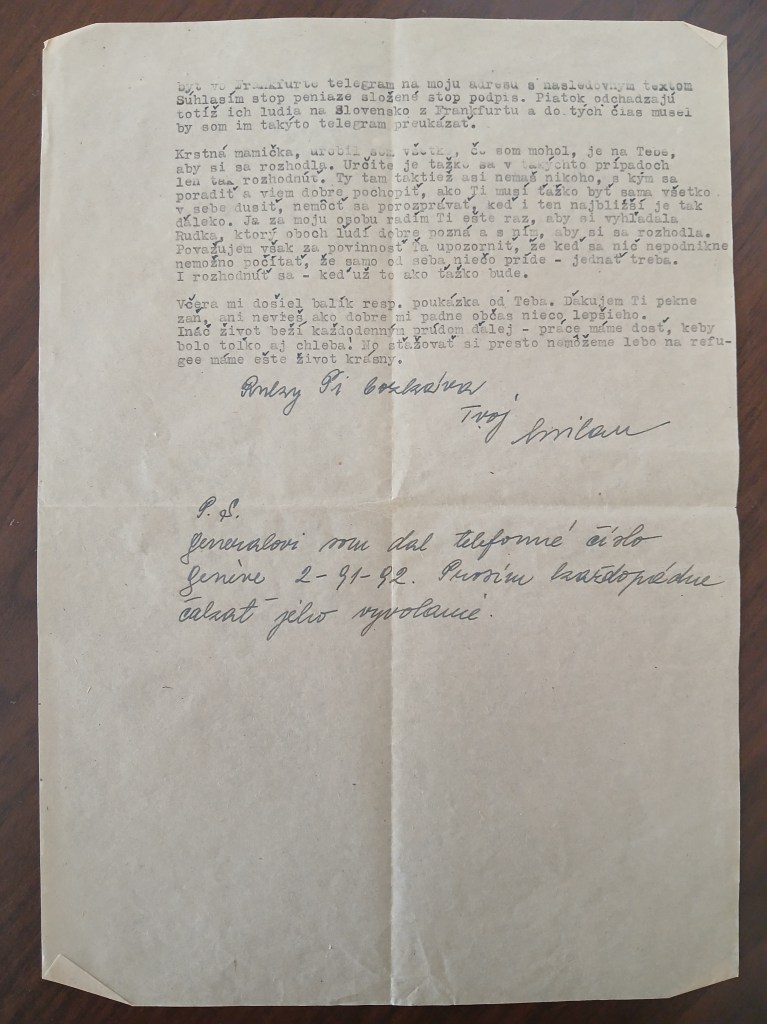 byť vo Frankfurte telegram na moju adresu s nasledovným textom
Súhlasím stop peniaze složené stop podpis. Piatok odchadzajú
totíž ich ludia na Slovensko z Frankfurtu a do tých čias musel
by som im takýto telegram preukázať.
Krstná mamička, urobil som všetky, čo som mohol, je na Tebe,
aby si sa rozhodla. Určite je tažko sa v takýchto prípadoch
len tak rozhodnúť. Ty tam taktiež asi nemaš nikoho, s kým sa
poradiť a viem dobre pochopiť, ako Ti musí ťažko byť sama všetko
v sebe dusiť, nemôcť sa porozprávať, keď i ten najbližší je tak
ďaleko. Ja za moju osobu radím Ti ešte raz, aby si vyhľadala
Rudka, ktorý oboch ludí dobre pozná a s ním, aby si sa rozhodla.
Považujem však za povinnosť Ťa upozorniť, že keď sa nič nepodnikne
nemožno počítať, že samo od seba niečo príde - jednať treba.
I rozhodnúť sa - keď už to ako ťažko bude.
Včera mi došiel balík resp. poukázka od Teba. Ďakujem Ti pekne
zaň, ani nevieš ako dobre mi padne občas nieco lepšieho.
Ináč život beží každodenným prúdom ďalej - práce máme dosť, keby
bolo tolko aj chleba! No sťažovať si presto nemôžeme lebo na refu-
gee máme ešte život krásny.
Ruky Ti bozkáva
Tvoj
Milan
P.S.
Generalovi som dal telefonné číslo
Genève 2-91-92. Prosím každopádne
čakať jeho vyvolanie.